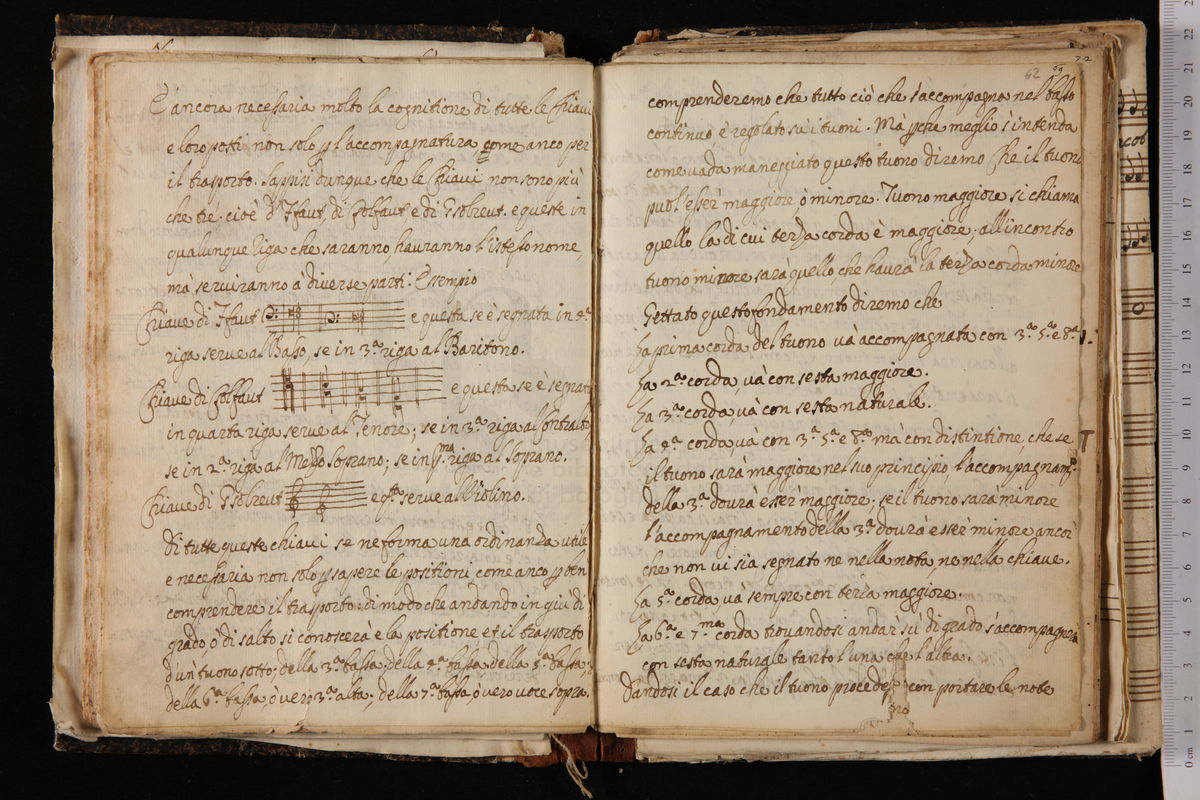 È ancora necessaria molto la cognitione di tutte le Chiavi
e loro posti non solo p l'accompagnatura come anco per
il trasporto. Sappisi dunque che le Chiavi non sono più
che trè. cioè d'Ffaut, di Csolfaut e di Gsolreut. e queste in
qualunque riga che saranno, hauranno l'istesso nome,
mà serviranno à diverse parti. Essempio
Chiave di Ffaut e questa se è segnata in 4.ª
riga serve al Basso, se in 3.ª riga al Baritono.
Chiave di Csolfaut e questa se è segnata
in quarta riga serve al Tenore; se in 3.ª riga al Contralto
se in 2.ª riga al Mezzo Soprano; se in pma riga al Soprano.
Chiave di Gsolreut e qta serve al Violino.
Di tutte queste chiavi se ne forma una ordinanza utile
e necessaria non solo p sapere le positioni come anco p ben
comprendere il trasporto: di modo che andando in giù di
grado, ò di salto si conoscerà e la positione et il trasporto
d'un tuono sotto; della 3.ª bassa; della 4.ª bassa, della 5.ª bassa;
della 6.ª bassa, ò vero 3.ª alta; della 7.ª bassa, ò vero voce sopra.
62 69 72
comprenderemo che tutto ciò che s'accompagna nel basso
continuo è regolato sù i tuoni. Mà pche meglio s'intenda
come vada maneggiato questo tuono diremo che il tuono
puol'esser maggiore, ò minore. Tuono maggiore si chiama
quello la di cui terza corda è maggiore; all'incontro
tuono minore sarà quello che haurà la terza corda minore
Gettato questo fondamento diremo che
La prima corda del tuono và accompagnata con 3.ª 5.ª e 8.ª
La 2.ª corda, và con sesta maggiore.
La 3.ª corda, và con sesta naturale.
La 4.ª corda, và con 3.ª 5.ª e 8.ª mà con distintione, che se
il tuono sarà maggiore nel suo principio l'accompagnam.º
della 3.ª dourà esser maggiore; se il tuono sarà minore
l'accompagnamento della 3.ª dourà esser minore ancor
che non vi sia segnato ne nella nota, ne nella chiave.
La 5.ª corda và sempre con terza maggiore.
La 6.ª e 7.ma corda trovandosi andar sù di grado s'accompagnera
con sesta naturale tanto l'una che l'altra.
Dandosi il caso che il tuono procedesse con portare le note